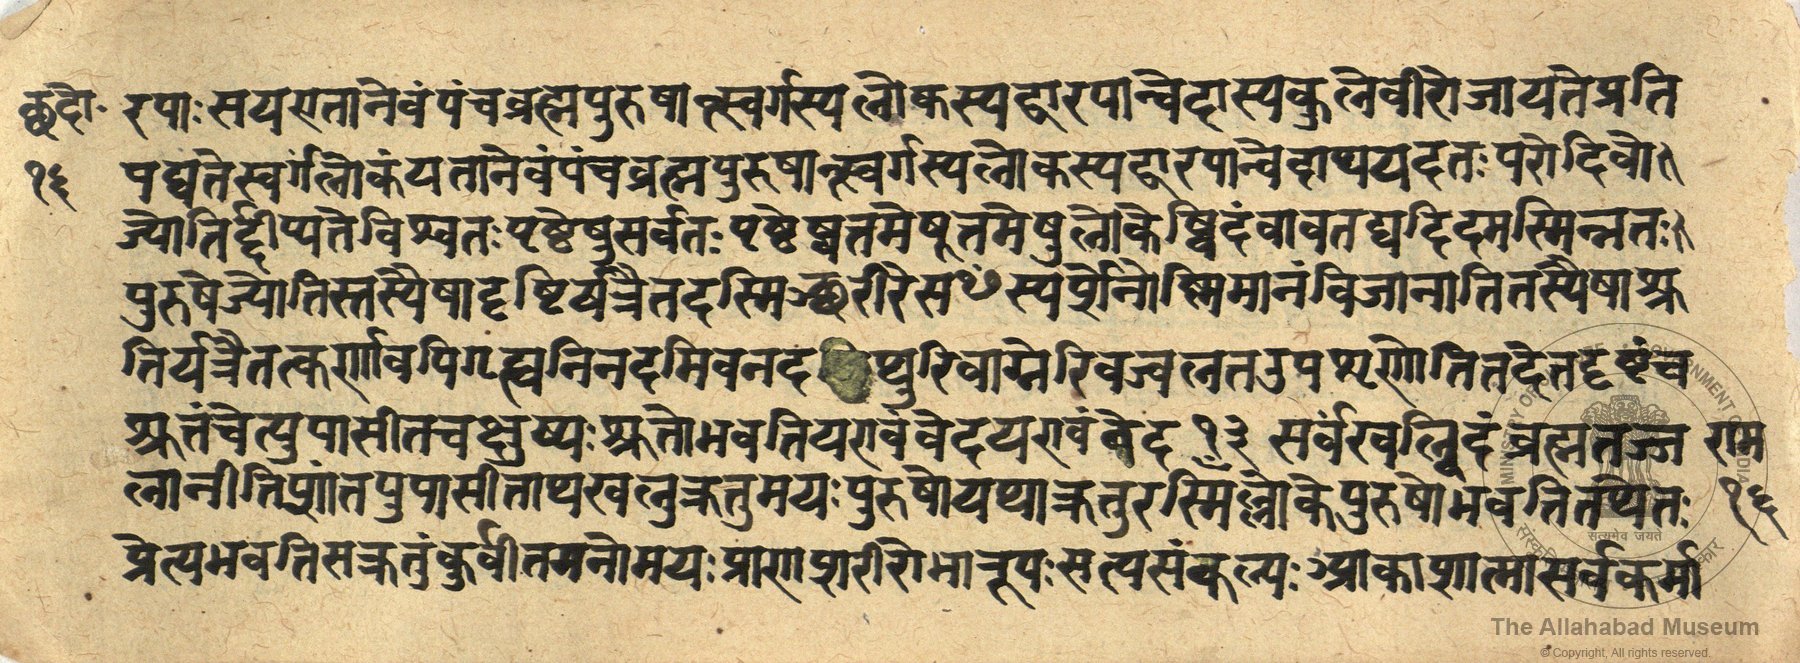 छांदो- रपाः सयएतानेवं पंचब्रह्मपुरुषान्स्वर्गस्यलोकस्यद्वारपान्वेदास्यकुलेवीरोजायतेप्रति
१६ पद्यतेस्वर्गंलोकंयतानेवंपंचब्रह्मपुरुषान्स्वर्गस्यलोकस्यद्वारपान्वेदाथयदतः परोदिवो
ज्योतिर्द्दीप्यतेविश्वतः पृष्ठेषुसर्वतः पृष्ठेष्वत्तमेषूत्तमेषुलोकेष्विदंवावतद्यदिदमस्मिन्नतः
पुरुषेज्योतिस्तस्यैषादृष्टिर्यत्रैतदस्मिञ्छरीरेसꣳस्पर्शेनोष्मिमानंविजानातितस्यैषाश्रु
तिर्यत्रैतत्कर्णावपिगृह्यनिनदमिवनद थुरिवाग्नेरिवज्वलतउपशृणोतितदेतद्दृष्टंच
श्रुतंचेत्युपासीतचक्षुष्यः श्रुतोभवतियएवंवेदयएवंवेद १३ सर्वंखल्विदंब्रह्मतज्ज राम
लानीतिशांतपुपासीताथखलुक्रतुमयः पुरुषोयथाक्रतुरस्मिँल्लोकेपुरुषोभवतितथेतः १६
प्रेत्यभवतिसक्रतुंकुर्वीतमनोमयः प्राणशरीरोभारूपः सत्यसंकल्पः आकाशात्मासर्वकर्मा
MINISTRY OF CULTURE, GOVERNMENT OF INDIA
सत्यमेव जयते
The Allahabad Museum
© Copyright, All rights reserved.